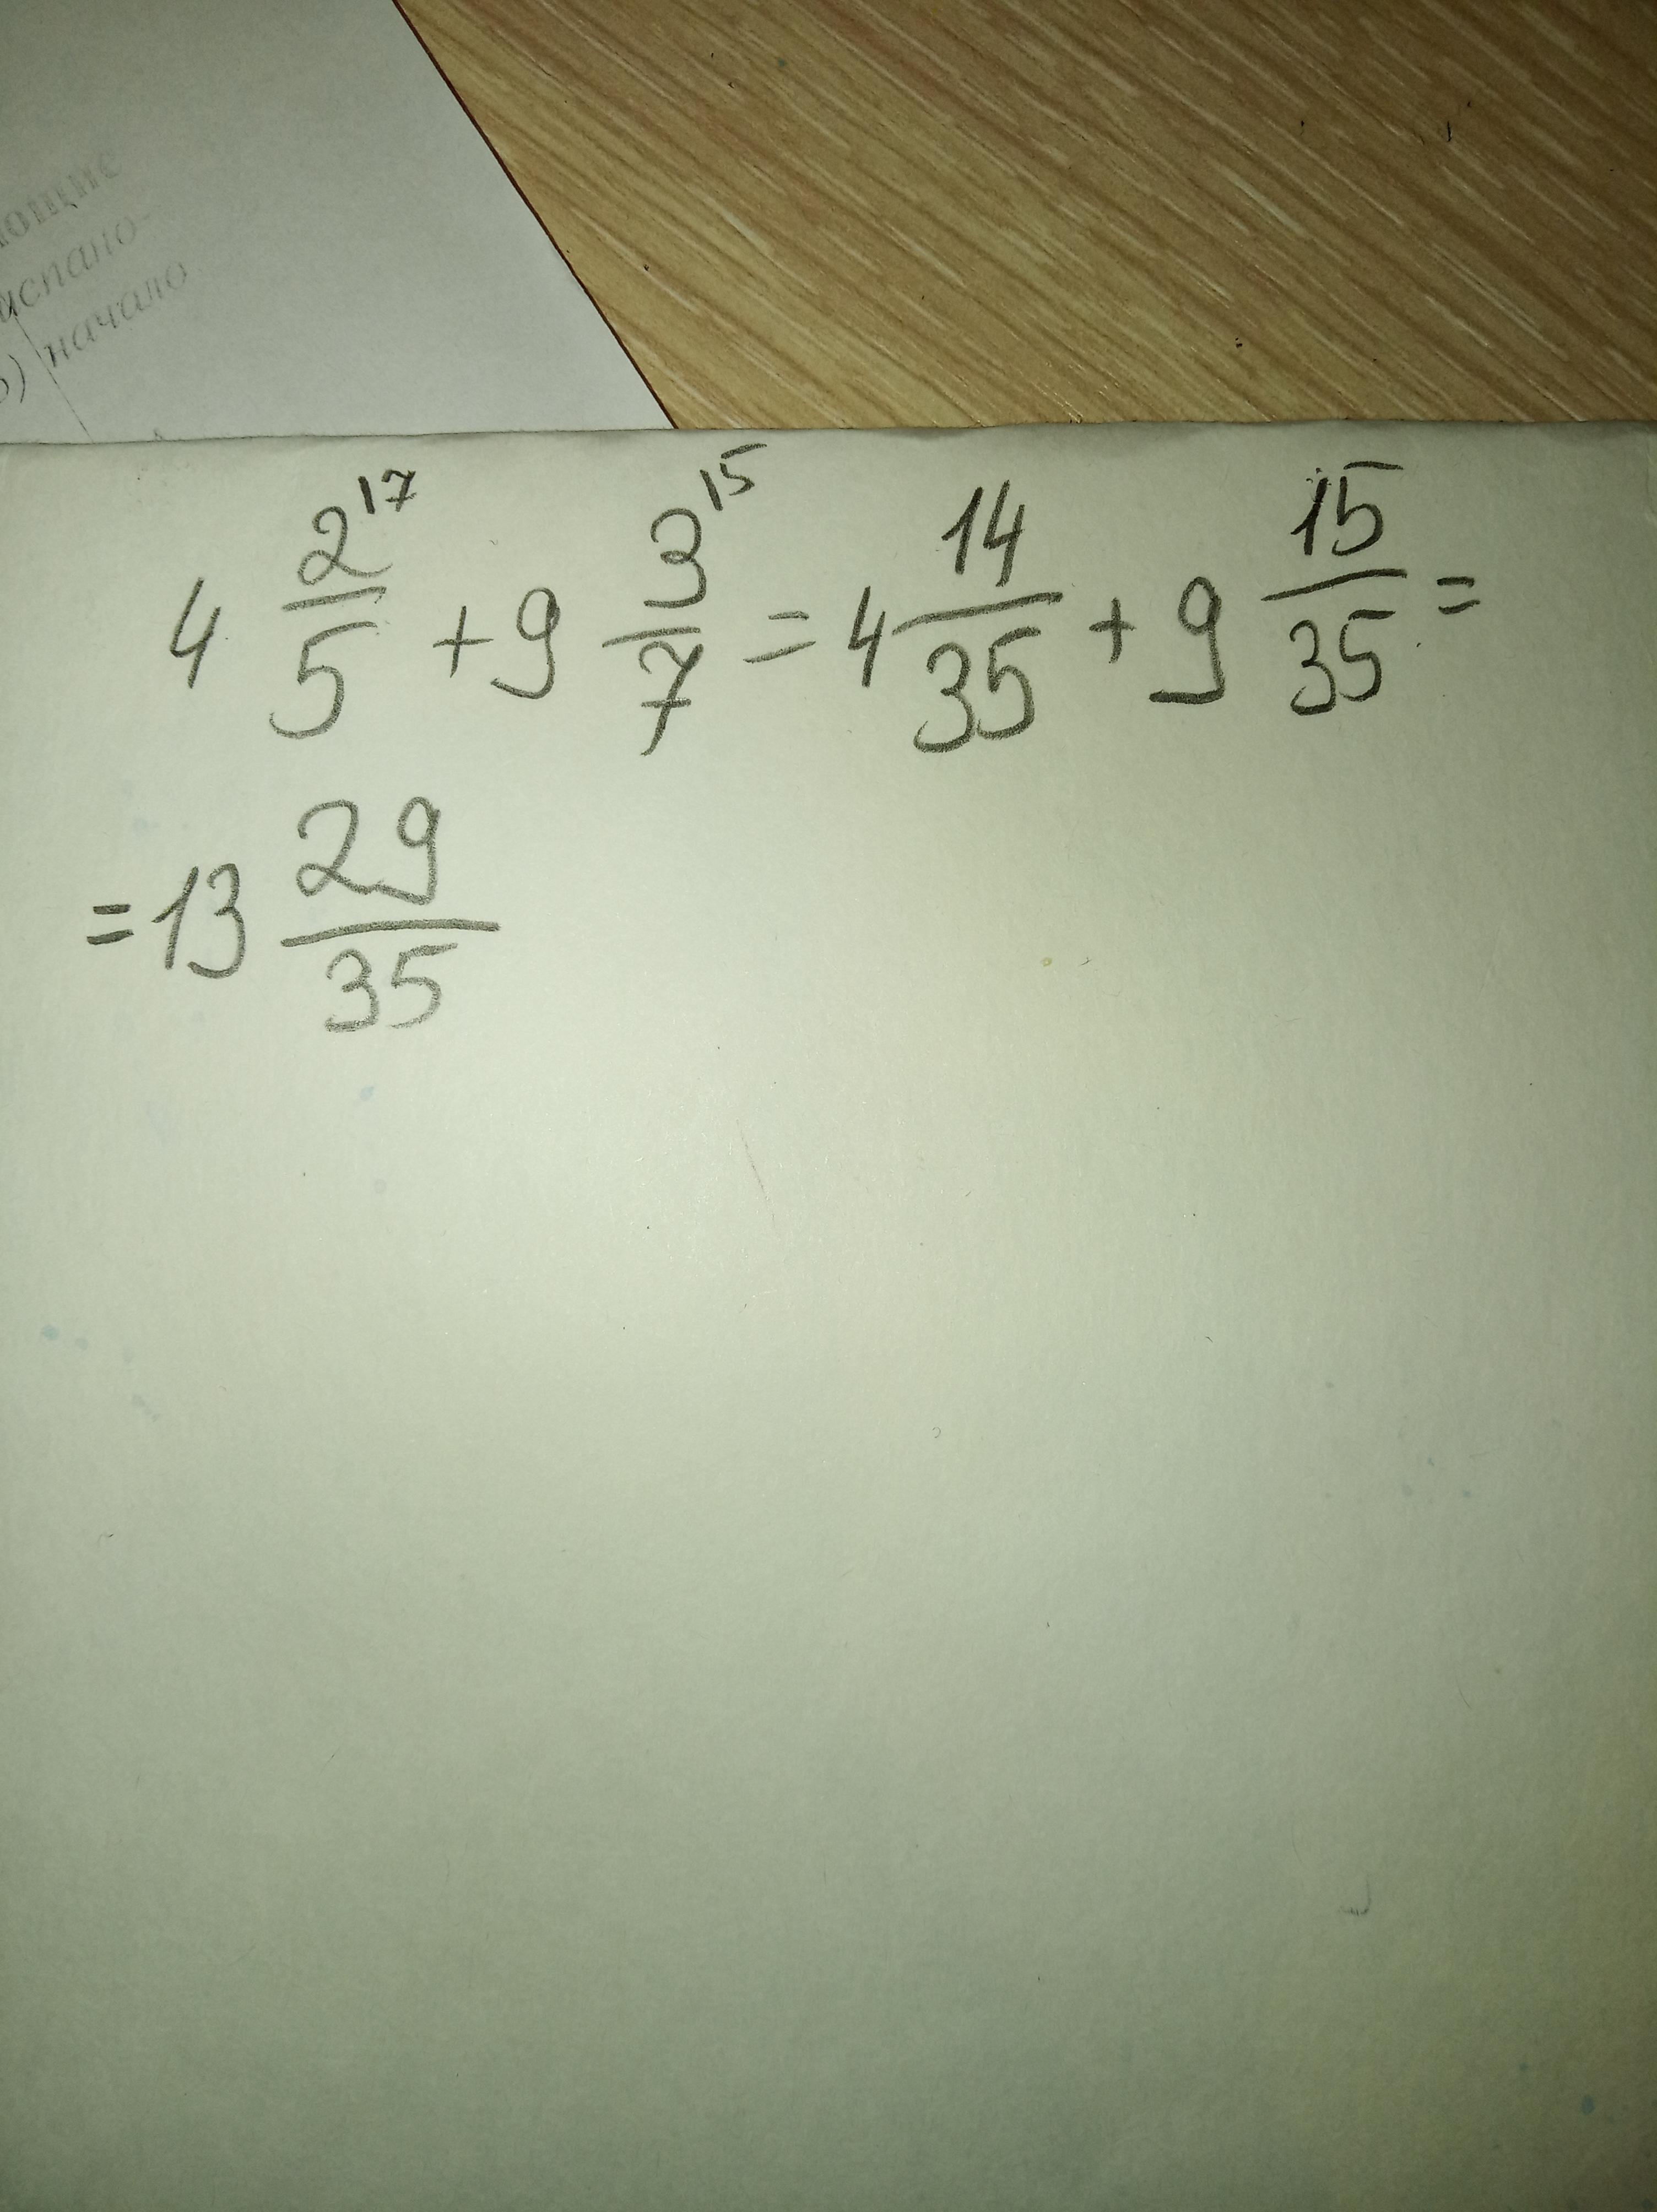 ющие
испано-
) начало
4 2/5 ¹⁷ + 9 3/7 ¹⁵ = 4 14/35 + 9 15/35 =
= 13 29/35